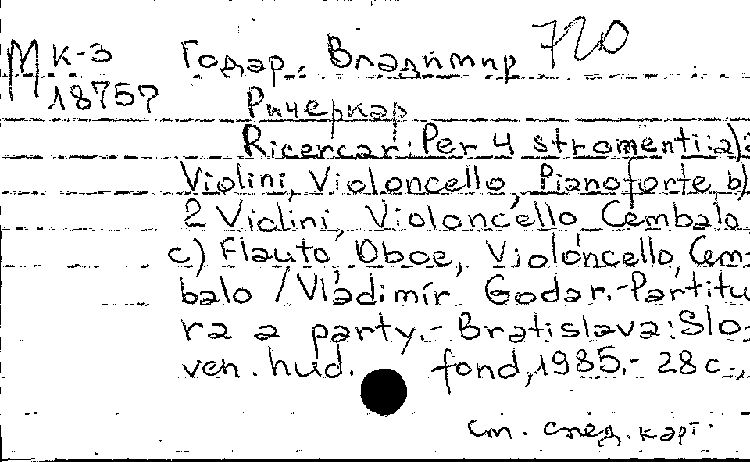 М К-3 Годар, Владимир 720
18757
Ричеркар
Ricercar: Per 4 stromenti: a)2
Violini, Violoncello, Pianoforte, b)
2 Violini, Violoncello, Cembalo,
c) Flauto, Oboe, Violoncello, Cem-
balo / Vladimír Godar.-Partitu-
ra a party.- Bratislava: Slo-
ven. hud. fond, 1985.- 28 с.,
см. след. карт.